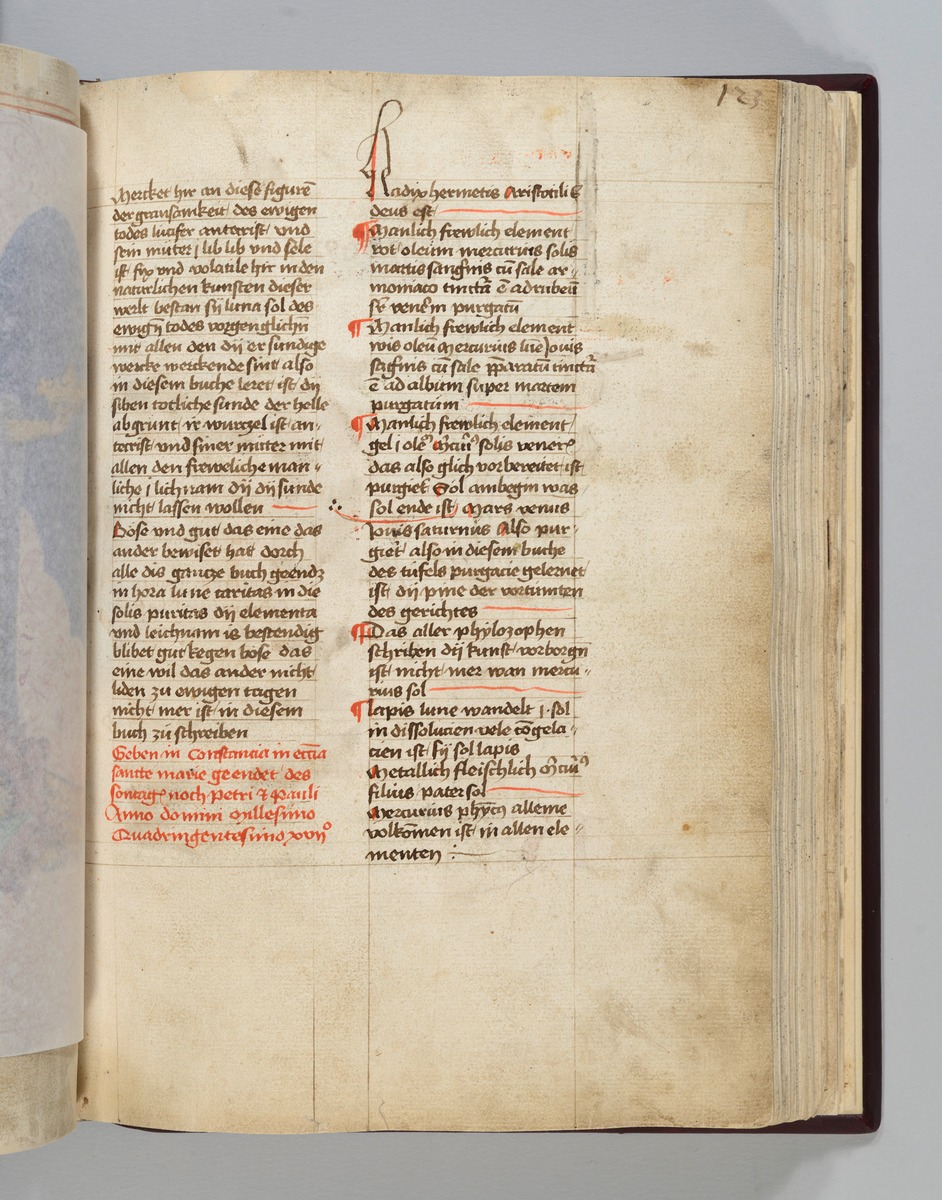 123
Mercket hir an diese figurē
der grausamkeit des ewigen
todes lucifer antecrist vnd
sein muter j lib lib vnd sele
ist fix vnd volatile hir in den
naturlichen kunsten dieser
werlt bestan sÿ luna sol des
ewigē todes vorgenglichn̄
mit allen den dij er sundige
wercke werckende sint also
in diesem buche leret ist dij
siben totliche sunde der helle
abgrunt ir wurczel ist an-
tecrist vnd siner muter mit
allen den freweliche man-
liche j lichnam dij dij sunde
nicht lassen wollen
Bose vnd gut das eine das
ander bewiset hat dorch
alle dis gancze buch geendz
in hora lune caritas in die
solis puritas dij elementa
vnd leichnam is bestendig
blibet gut kegen bose das
eine wil das ander nicht
liden zu ewigen tagen
nicht mer ist in diesem
buch zu schreiben
Geben in Constancia in eccīa
sancte marie geendet des
sontages noch petri & pauli
Anno domini millesimo
Quadringentesimo xvii°
Radix hermetis Aristotilis
deus est
Manlich frewlich element
rot oleum mercurius solis
martis sangīnis cū sale ar-
moniaco tinctā ē ad rubeū
purgatū
Manlich frewlich element
wis oleū mercurius lune Jouis
cū sale tinctā
ē ad album super martem
purgatum
Manlich frewlich element
gel j solis
das also glich vorbereitet ist
purgiet Sol ambegin was
sol ende ist Mars venus
Jouis saturnus Also pur-
giet also in diesem buche
des tufels purgacie gelernet
ist dij pine der vortumten
des gerichtes
Das aller phÿlozophen
schriben dij kunst vorborgn̄
ist nicht mer wan mercu-
rius sol
lapis lune wandelt j sol
in dissolucien vele cōgela-
cien ist sij sol lapis
Metallich fleischlich
filius pater sol
Mercurius alleine
volkomen ist in allen ele-
menten